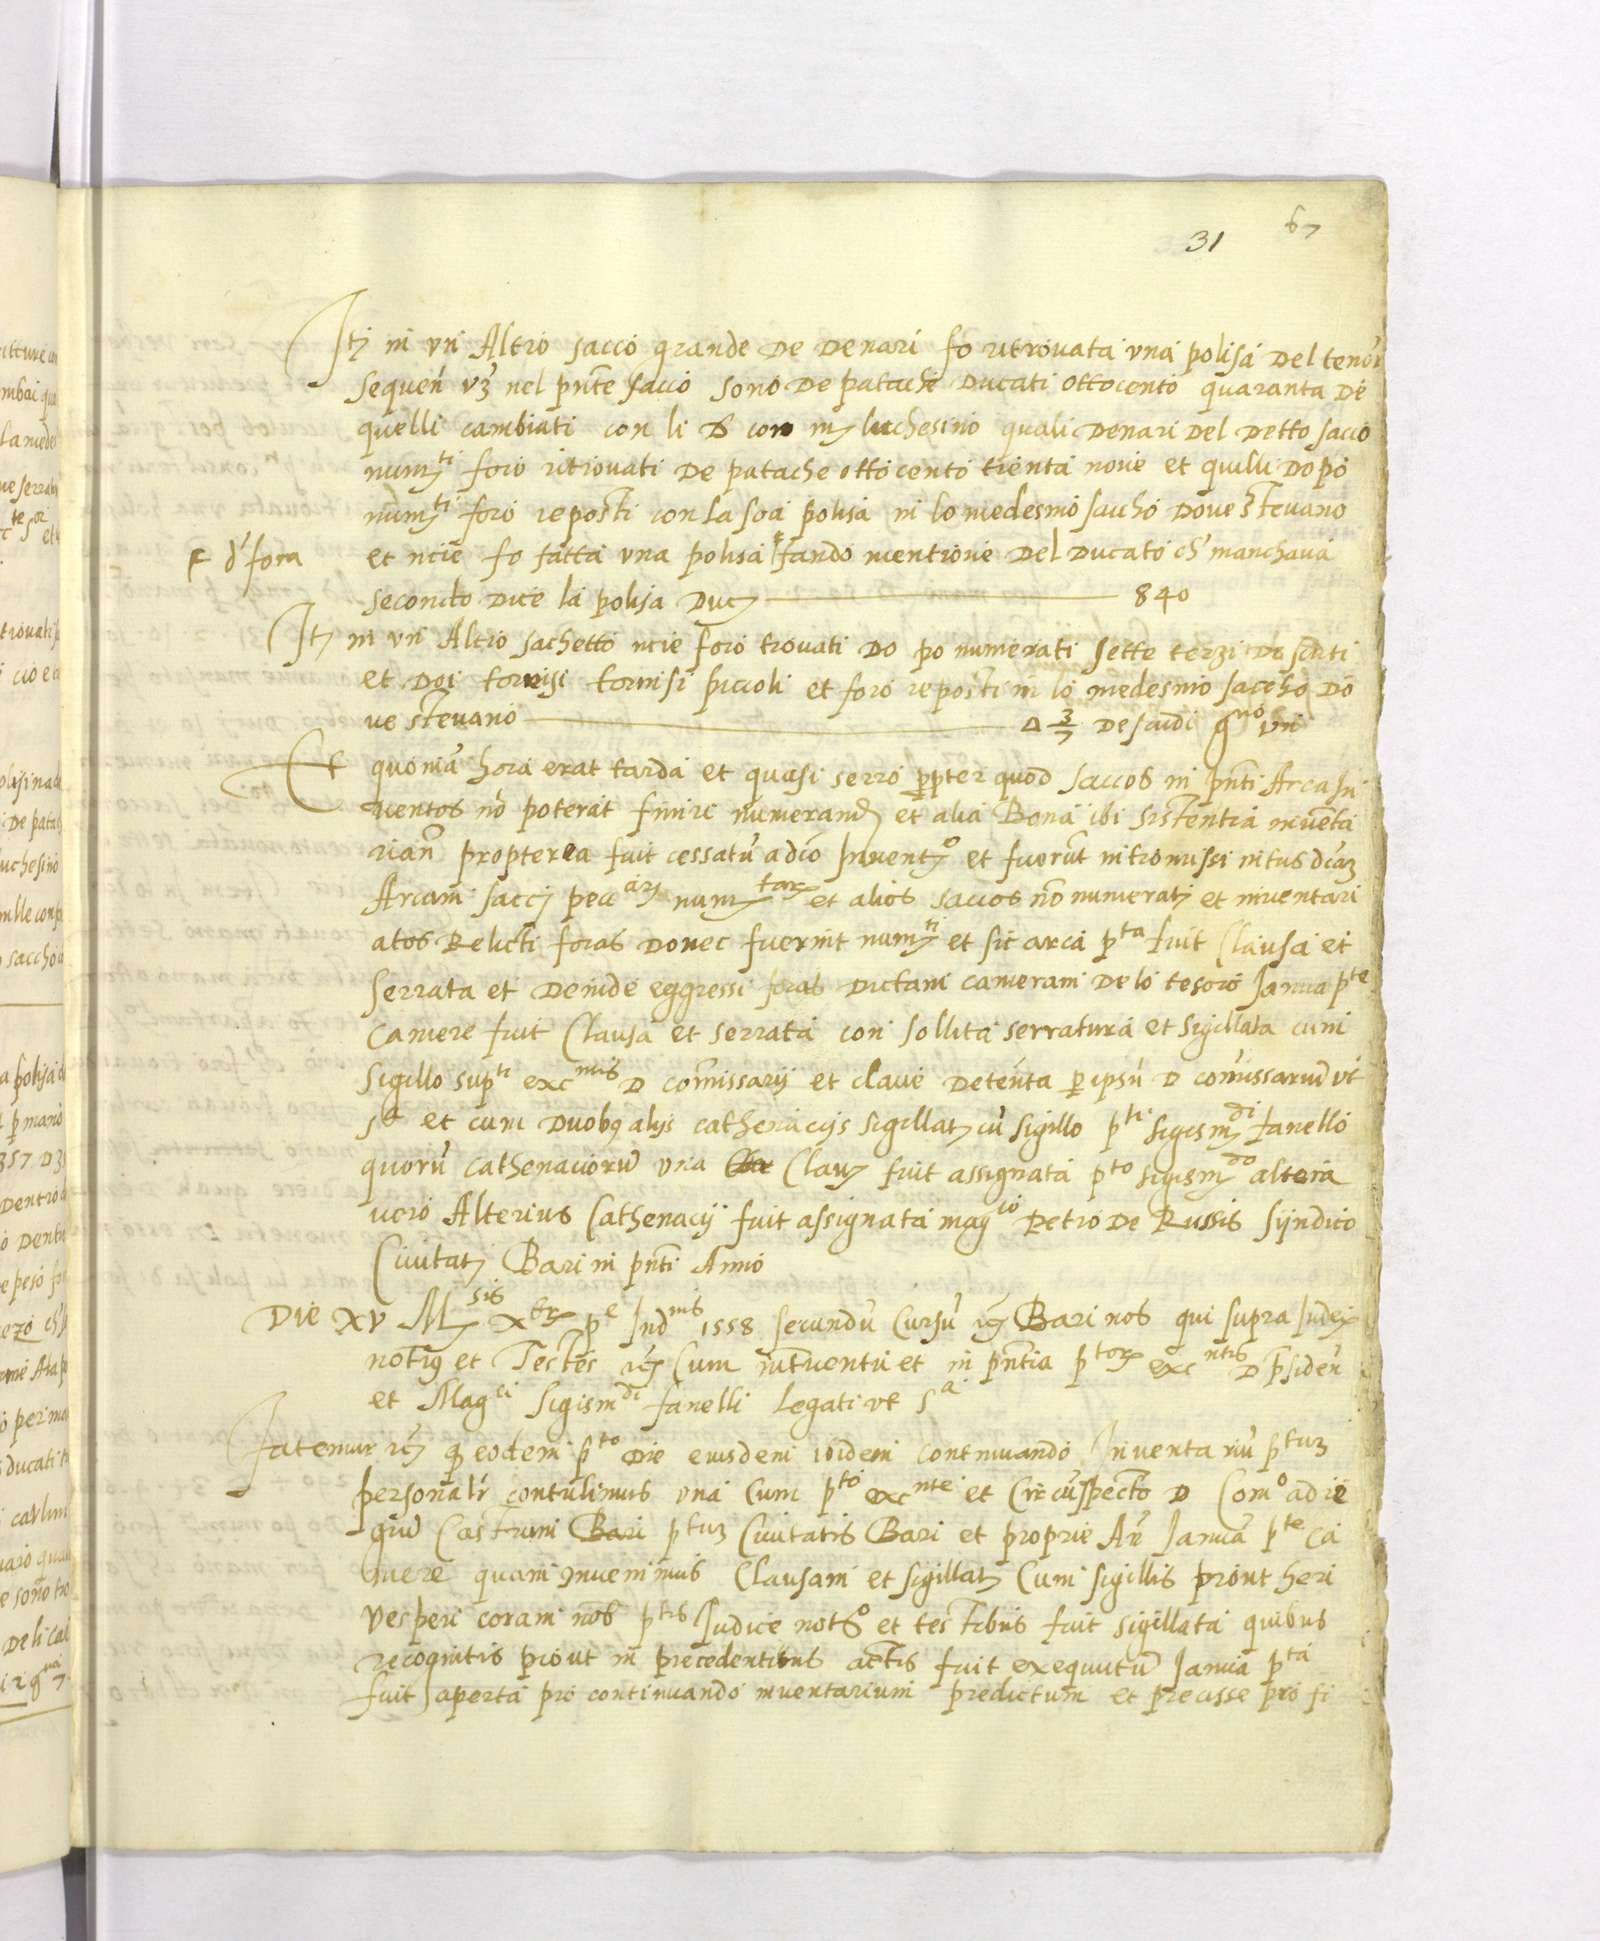 31 67
Itz in un Altro sacco grande de denari fo ritrovata una polisa del tenor
sequen uz nel pnte sacco sono de patache ducati ottocento quaranta de
quelli cambiati con li D con mz luchesino quali denari del detto sacco
numz.ti foro ritrovati de patache ottocento trenta nove et quilli dopo
numz.ti foro reposti con la soa polisa in lo medesmo saccho dove stevano
et ncie fo fatta una polisa fando mentione del ducato ch' manchava
F d'fora
secondo dice la polisa ducz 840
Itz in un Altro sachetto ncie foro trovati do po numerati sette terzi de scuti
et doi tornisi tornisi piccoli et foro reposti in lo medesmo saccho do
ve stevano Δ 3/7 de scudi g.no un
Et quoniā hora erat tarda et quasi sero ppter quod saccos in pnti Arca in
ventos nō poterat finire numerand et alia Bona ibi sistentia inventa
rian propterea fuit cessatū adīo Inventz.o et fuerūt intromissi intus dcāz
Arcam saccz pecc.arz numz.tarz et alios saccos nō numeratz et inventari
atos Relicti foras donec fuerint numz.ti et sic arca p.ta fuit Clausa et
Serrata et deinde eggressi foras dictam cameram de lo tesoro Janua p.te
Camere fuit Clausa et serrata con sollita serratura et sigillata cum
sigillo sup.ti exc.ntis D comissarij et clave detenta p ipsū D comissariū ut
s.a et cum duobq alijs cathenacijs sigillatz cū sigillo p.ti sigismz.di fanello
quorū cathenaciorū una Clavz fuit assignata p.to sigismz.do altera
vero Alterius Cathenacij fuit assignata mag.co Petro de Russis Sijndico
Civitatz Bari in pnti Anno
Die XV Mz.sis X.brz p.e Ind.nis 1558 secundū Cursū rz Bari nos qui supra Iudex
notrq et Testes rz Cum interventu et in pntia p.torz exc.ntis D Psiden
et Mag.ci Sigism.di fanelli Legati ut s.a
Fatemur rz q eodem p.to die eiusdem ibidem continuando Inventariū p.tuz
personalr contulimus una Cum p.to exc.nte et Circūspecto D Com.o ad re
giū Castrum p.tuz Civitatis Bari et proprie An Januā p.te Ca
mere quam Invenimus Clausam et sigillatz Cum sigillis prout heri
Vesperi coram nob p.tis Judice not.o et testibus fuit sigillata quibus
recognitis prout in precedentibus actis fuit exequutū Janua p.ta
fuit aperta pro continuando inventarium predictum et precisse pro fi